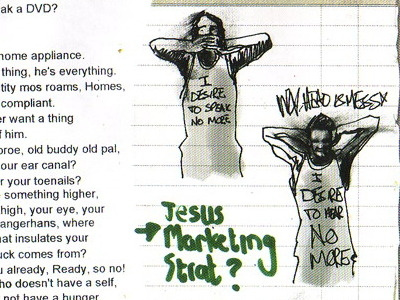 ak a DVD?
home appliance.
thing, he's everything.
tity mos roams, Homes,
compliant.
er want a thing
f him.
oroe, old buddy old pal,
your ear canal?
r your toenails?
e something higher,
high, your eye, your
angerhans, where
hat insulates your
uck comes from?
u already, Ready, so no!
ho doesn't have a self,
not have a hunger
I
DESIRE
TO SPEAK
NO MORE
MY HEAD IS MESSY
I
DESIRE
TO HEAR
NO
MORE
Jesus
Marketing
Strat?